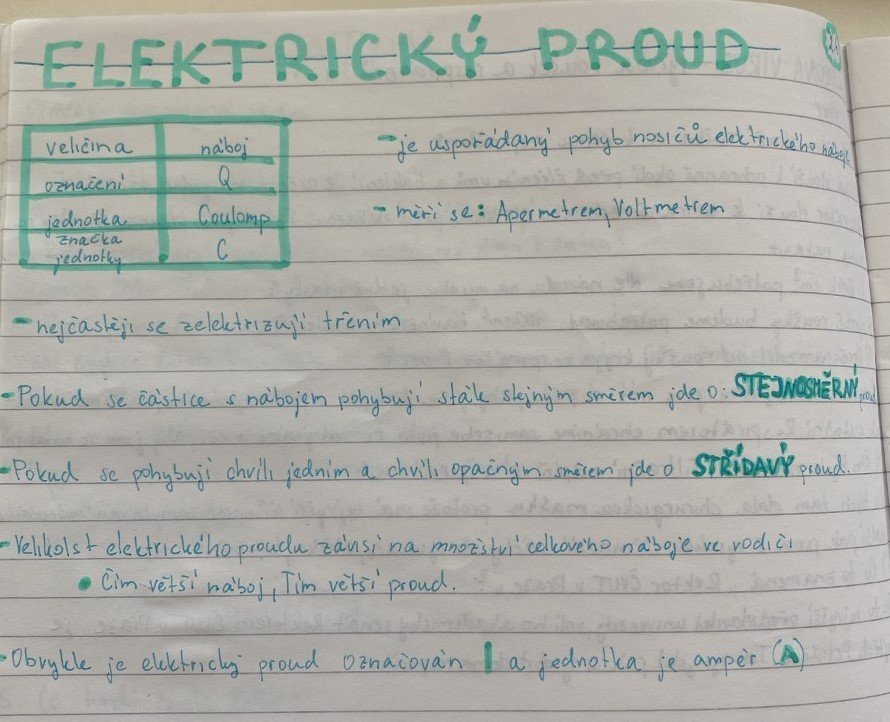 ELEKTRICKÝ PROUD
veličina náboj
označení Q
jednotka Coulomp
značka jednotky C
- je uspořádaný pohyb nosičů elektrického náboje
- měří se: Apermetrem, Voltmetrem
- nejčastěji se zelektrizují třením
- Pokud se částice s nábojem pohybují stále stejným směrem jde o: STEJNOSMĚRNÝ proud
- Pokud se pohybují chvíli jedním a chvíli opačným směrem jde o STŘÍDAVÝ proud.
- Velikolst elektrického proudu závisí na množství celkového náboje ve vodiči
• Čím větší náboj, Tím větší proud.
- Obvykle je elektrický proud označován I a jednotka je ampér (A)